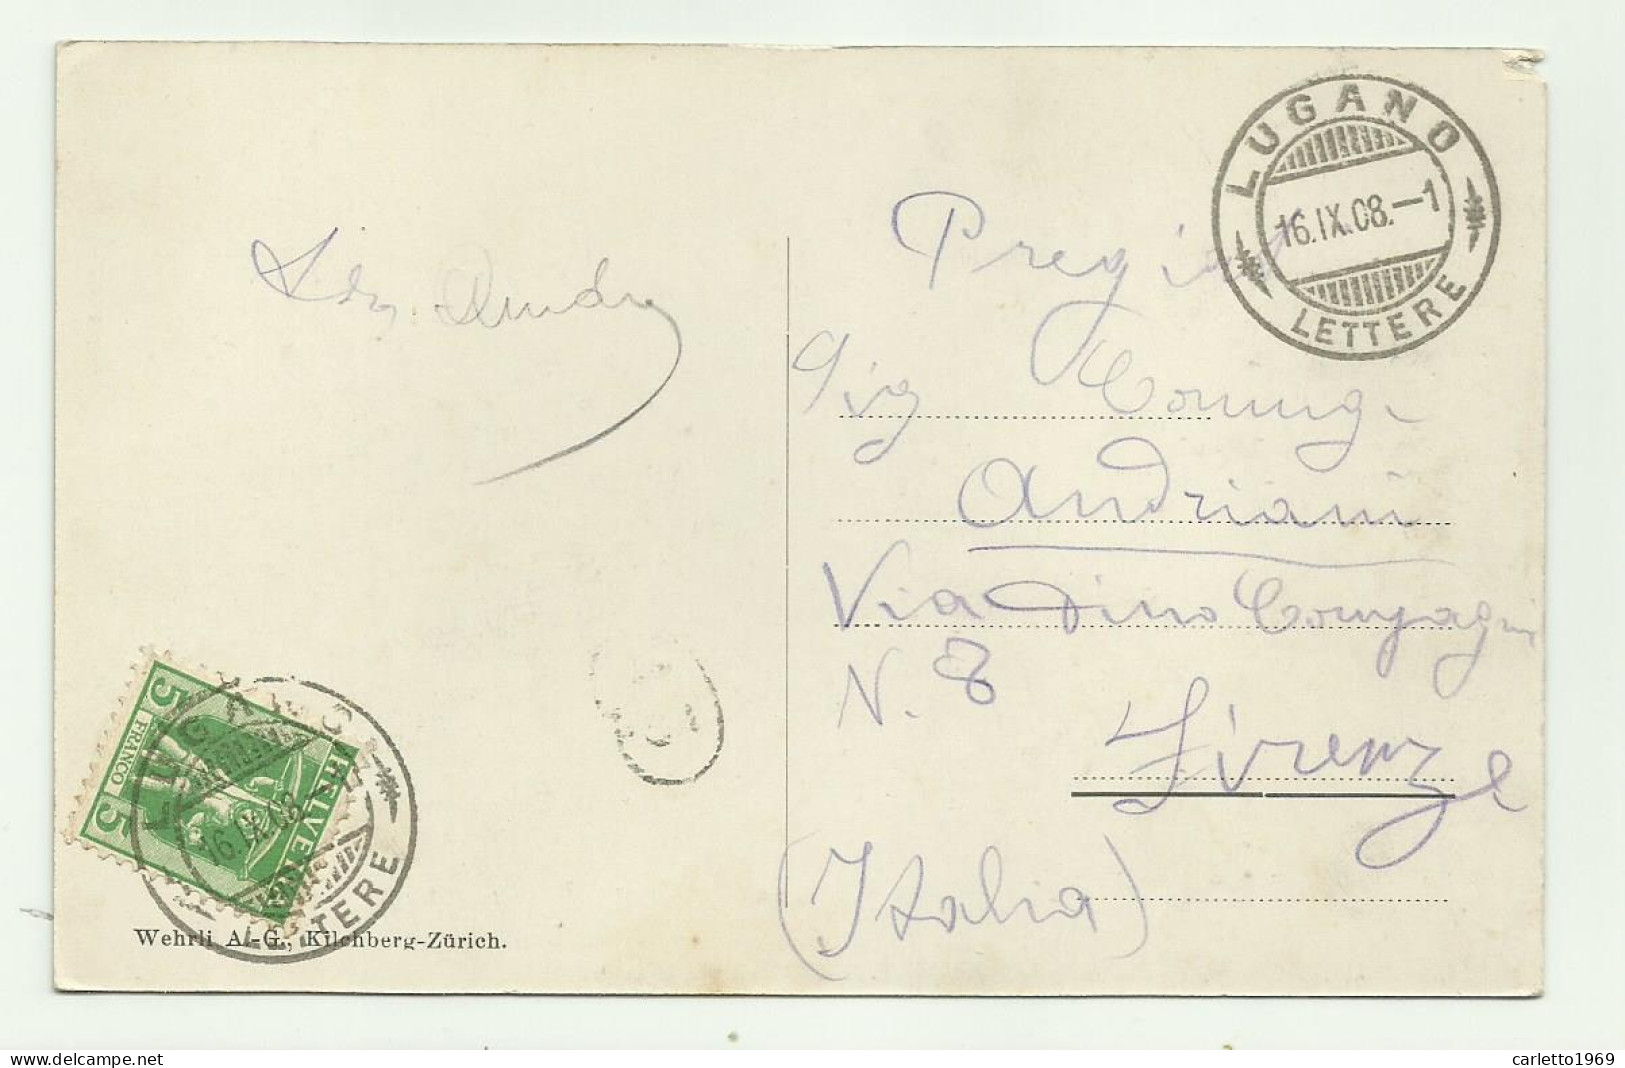 LUGANO
16.IX.08.-1
LETTERE
Preg
Sig
Andriani
Via Dino Compagni
N. 8
Firenze
(Italia)
5 FRANCO 5
HELVETIA
LUGANO
16.IX.08.
LETTERE
Wehrli A.-G., Kilchberg-Zürich.
delcampe.net
carletto1969